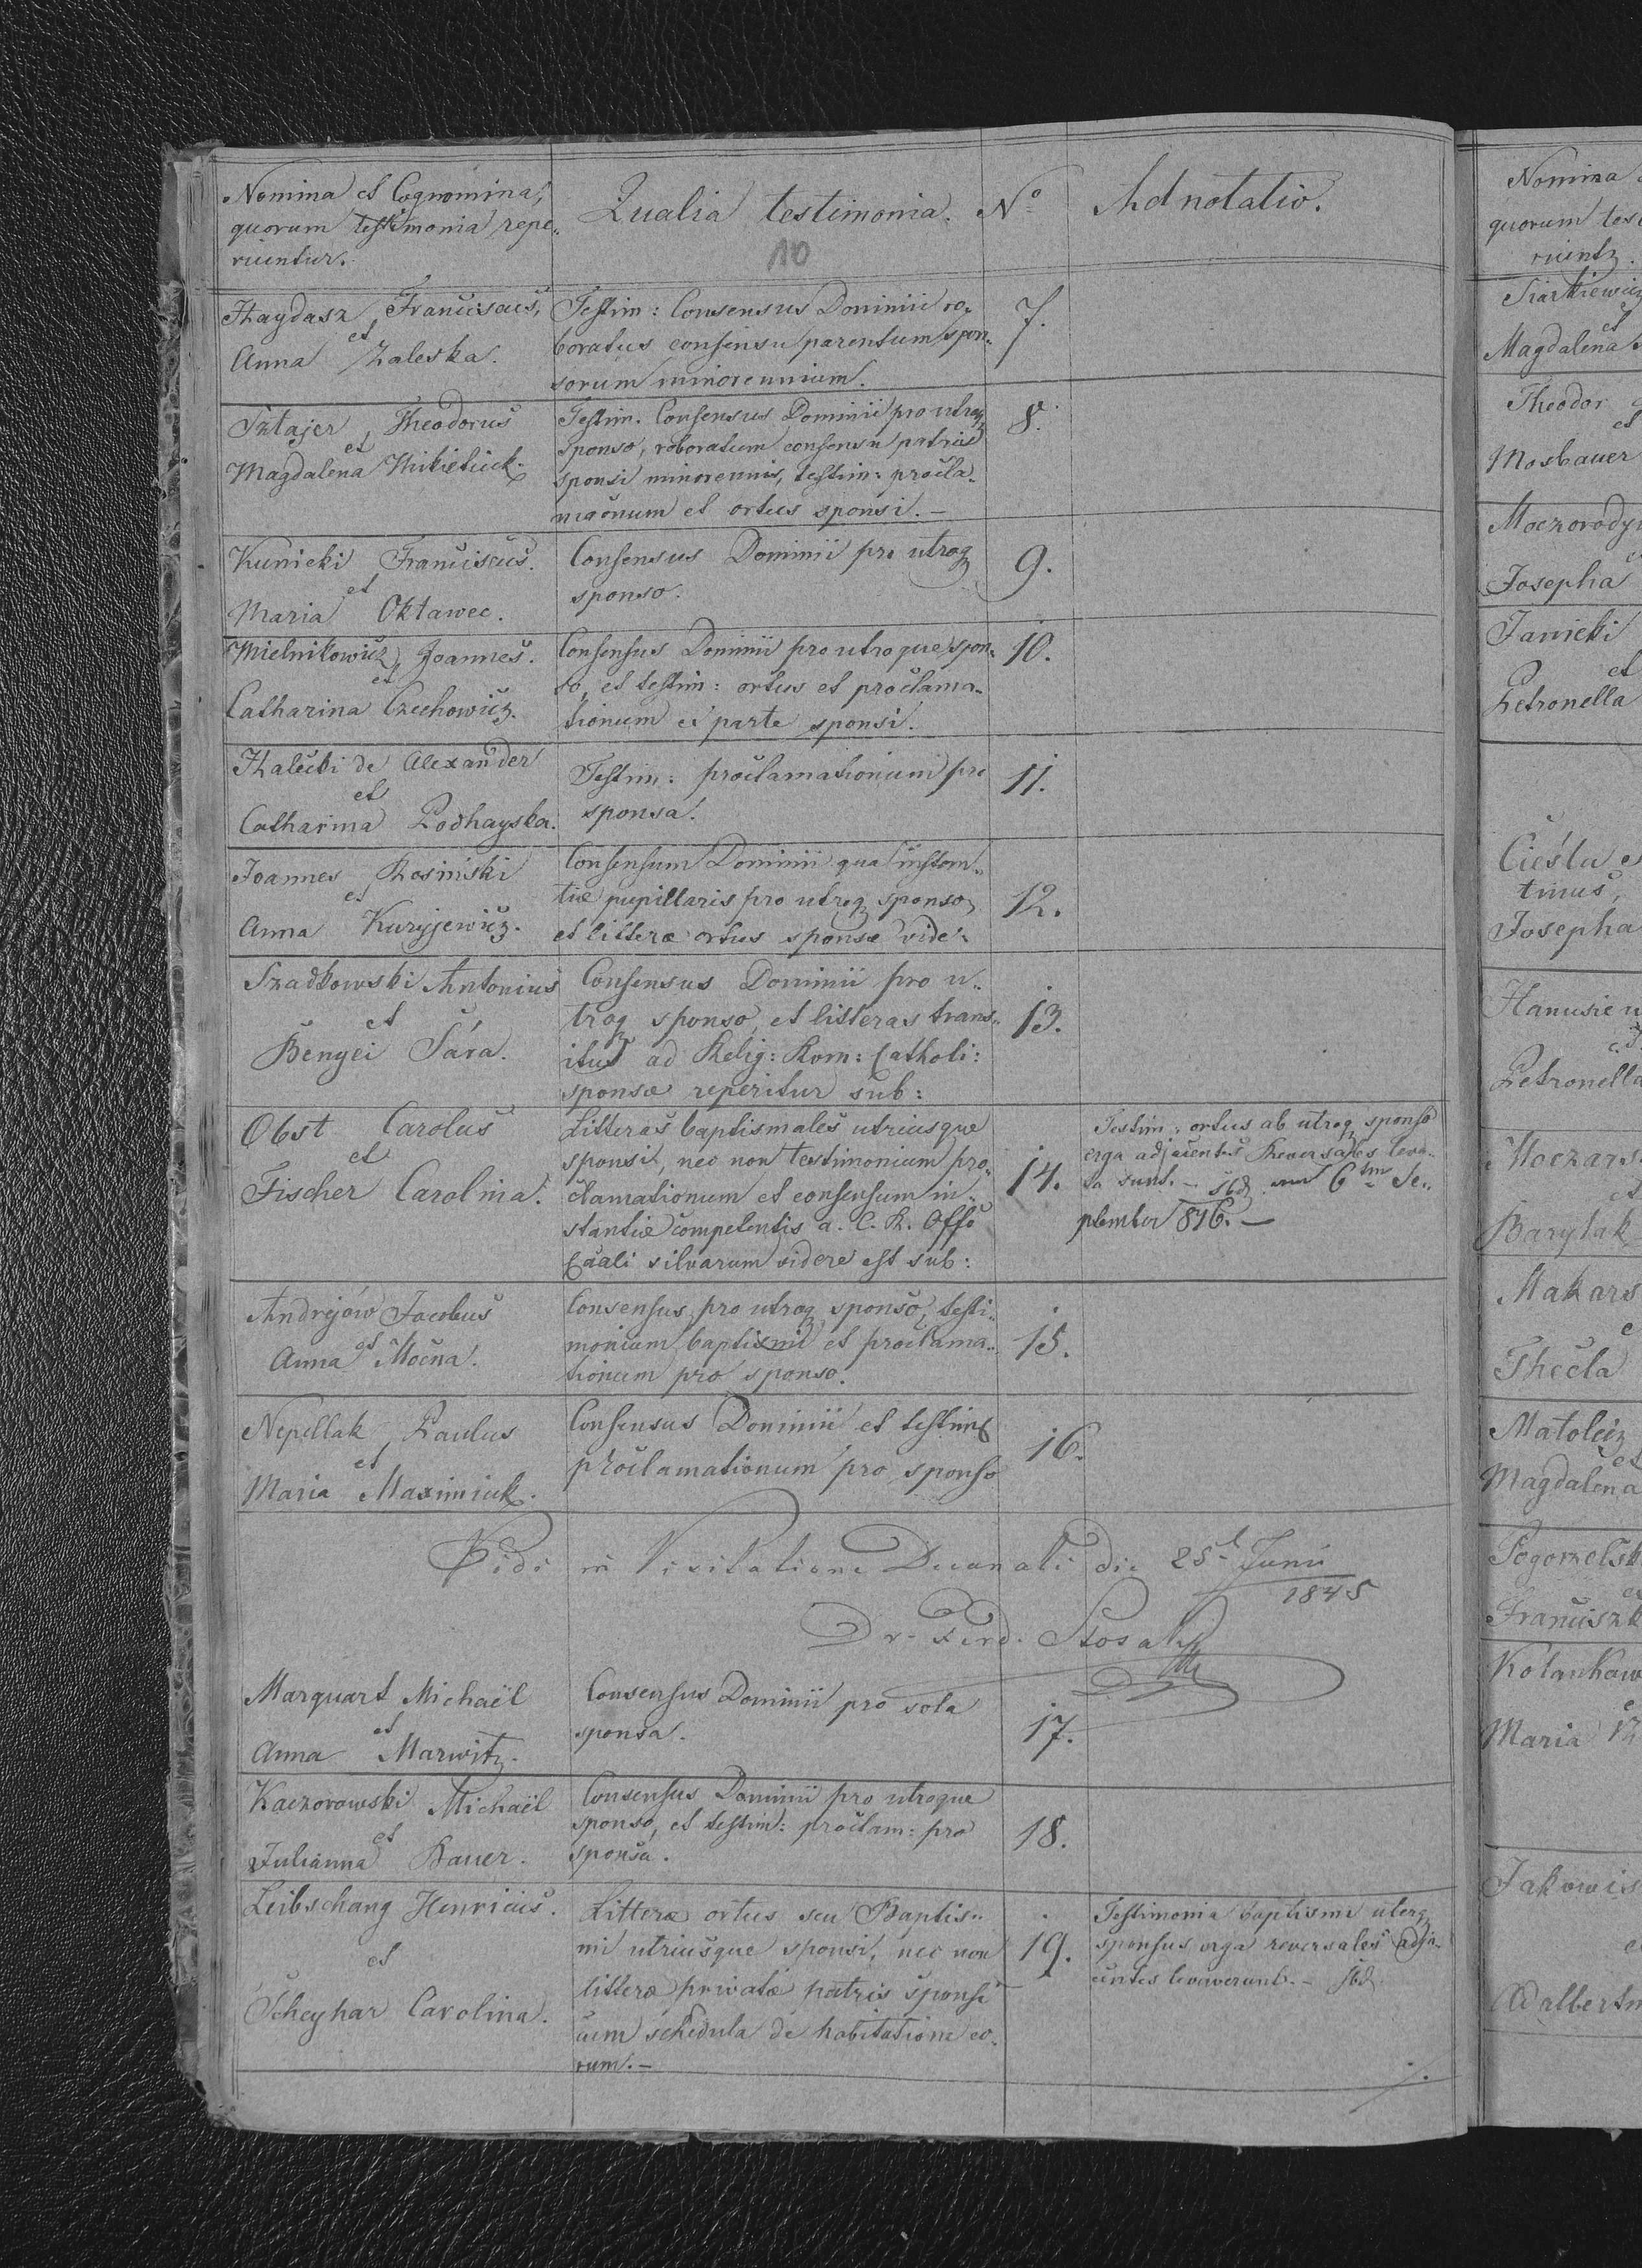 Nomina et Cognomina,
quorum testimonia repe-
riuntur.
Qualia testimonia.
10
No
Adnotatio.
Haydasz Franciscus,
et
Anna Zaleska.
Testim: Consensus Dominii ro-
boratus consensu parentum spon-
sorum minorennium.
7.
Sztajer Theodorus
et
Magdalena Mikietiuk.
Testim. Consensus Dominii pro utroq
sponso, roboratum consensu patris
sponsi minorennis, testim: procla-
maonum et ortus sponsi. –
8.
Kunicki Franciscus.
et
Maria Oktawec.
Consensus Dominii pro utroq
sponso.
9.
Mielnikowicz, Joannes.
et
Catharina Czechowicz.
Consensus Dominii pro utroque spon-
so, et testim: ortus et proclama-
tionum ex parte sponsi.
10.
Halecki de Alexander
et
Catharina Podhayska.
Testim: proclamationum pro
sponsa.
11.
Joannes Rosiński
et
Anna Kuryjewicz.
Consensum Dominii qua instan-
tiæ pupillaris pro utroq sponso,
et litteræ ortus sponsæ vide:
12.
Szadkowski Antonius
et
Benyei Sára.
Consensus Dominii pro u-
troq sponso, et litteras trans-
itus ad Relig: Rom: Catholi:
sponsæ reperitur sub:
13.
Obst Carolus
et
Fischer Carolina.
Litteras baptismales utriusque
sponsi, nec non testimonium pro-
clamationum et consensum in-
stantiæ competentis a. C. R. Offo
Caali silvarum videre est sub:
14.
Testim: ortus ab utroq sponso
erga adjacentes Reversales leva-
ta sunt. – 6tn Se-
ptember 846. –
Andrejów Jacobus
et
Anna Mocna.
Consensus pro utroq sponso, testi-
monium baptismi et proclama-
tionum pro sponso.
15.
Nepellak Paulus
et
Maria Maximiuk.
Consensus Dominii et testim
proclamationum pro sponso
16.
Vidi in Visitatione Decanali die 25t Junii
1845
Dr. Ferd.
Marquart Michaël
et
Anna Marwitz.
Consensus Dominii pro sola
sponsa.
17.
Kaczorowski Michaël
et
Julianna Bauer.
Consensus Dominii pro utroque
sponso, et testim: proclam: pro
sponsa.
18.
Leibschang Henricus.
et
Scheyhar Carolina.
Litteræ ortus seu Baptis-
mi utriusque sponsi, nec non
litteræ privatæ patris sponsi
cum schedula de habitatione eo-
rum. –
19.
Testimonia baptismi uterq
sponsus erga reversales adja-
centes levaverunt. –
Nomina
quorum tes
riuntz.
Magdalena
Theodor
et
Mosbauer
Josepha
Janicki
et
Petronella
Cieśla
tinus,
Josepha
Petronella
et
Barylak
Makars
Thecla
et
Magdalena
Pogorzelsk
Franciszk
Maria
Adalbertu